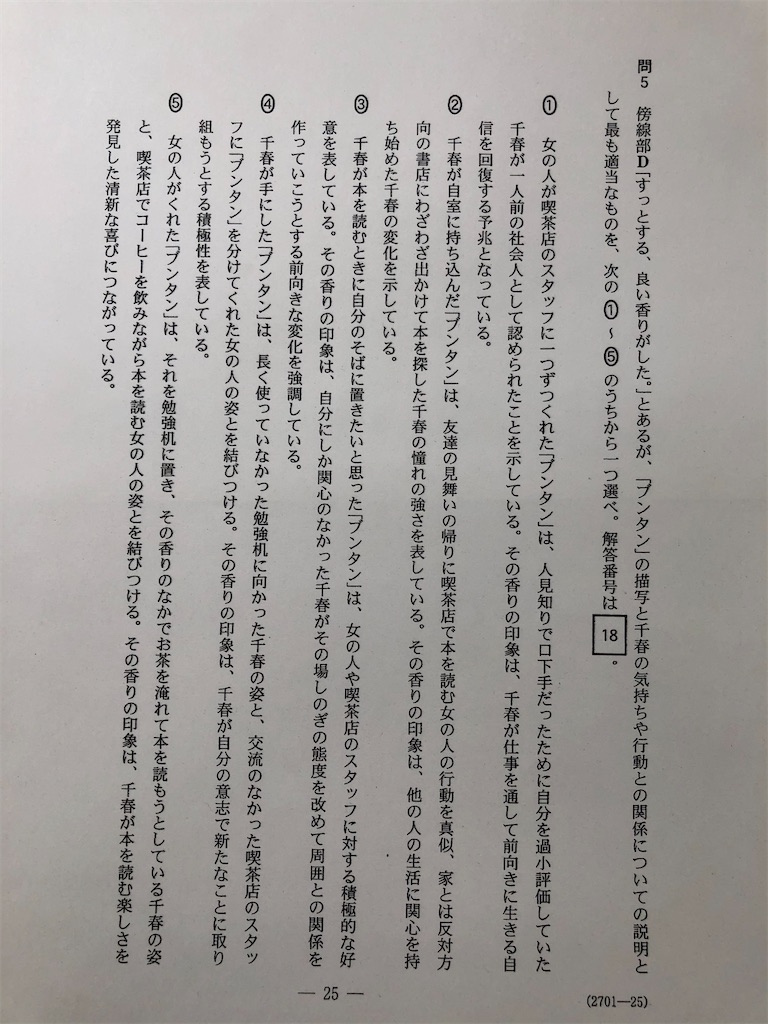 問5 傍線部D「すっとする、良い香りがした。」とあるが、「ブンタン」の描写と千春の気持ちや行動との関係についての説明と
して最も適当なものを、次の①～⑤のうちから一つ選べ。解答番号は 18 。
① 女の人が喫茶店のスタッフに一つずつくれた「ブンタン」は、人見知りで口下手だったために自分を過小評価していた
千春が一人前の社会人として認められたことを示している。その香りの印象は、千春が仕事を通して前向きに生きる自
信を回復する予兆となっている。
② 千春が自室に持ち込んだ「ブンタン」は、友達の見舞いの帰りに喫茶店で本を読む女の人の行動を真似、家とは反対方
向の書店にわざわざ出かけて本を探した千春の憧れの強さを表している。その香りの印象は、他の人の生活に関心を持
ち始めた千春の変化を示している。
③ 千春が本を読むときに自分のそばに置きたいと思った「ブンタン」は、女の人や喫茶店のスタッフに対する積極的な好
意を表している。その香りの印象は、自分にしか関心のなかった千春がその場しのぎの態度を改めて周囲との関係を
作っていこうとする前向きな変化を強調している。
④ 千春が手にした「ブンタン」は、長く使っていなかった勉強机に向かった千春の姿と、交流のなかった喫茶店のスタッ
フに「ブンタン」を分けてくれた女の人の姿とを結びつける。その香りの印象は、千春が自分の意志で新たなことに取り
組もうとする積極性を表している。
⑤ 女の人がくれた「ブンタン」は、それを勉強机に置き、その香りのなかでお茶を淹れて本を読もうとしている千春の姿
と、喫茶店でコーヒーを飲みながら本を読む女の人の姿とを結びつける。その香りの印象は、千春が本を読む楽しさを
発見した清新な喜びにつながっている。
— 25 —
(2701—25)